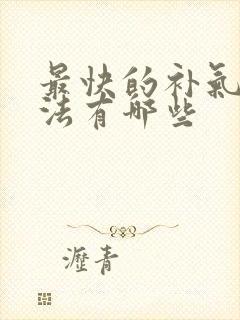 最快的补氣
法有哪些
瀝青